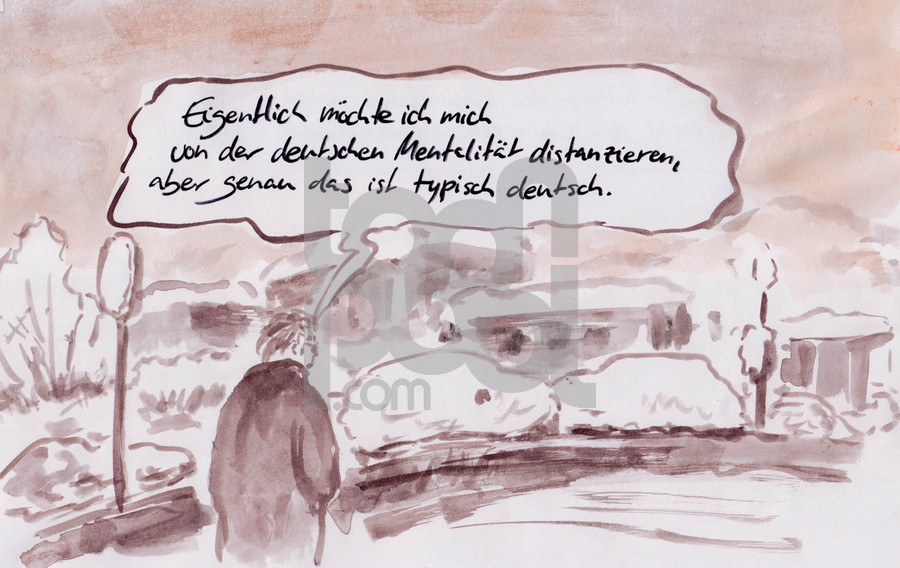 Eigentlich möchte ich mich
von der deutschen Mentalität distanzieren,
aber genau das ist typisch deutsch.
toonpool
.com